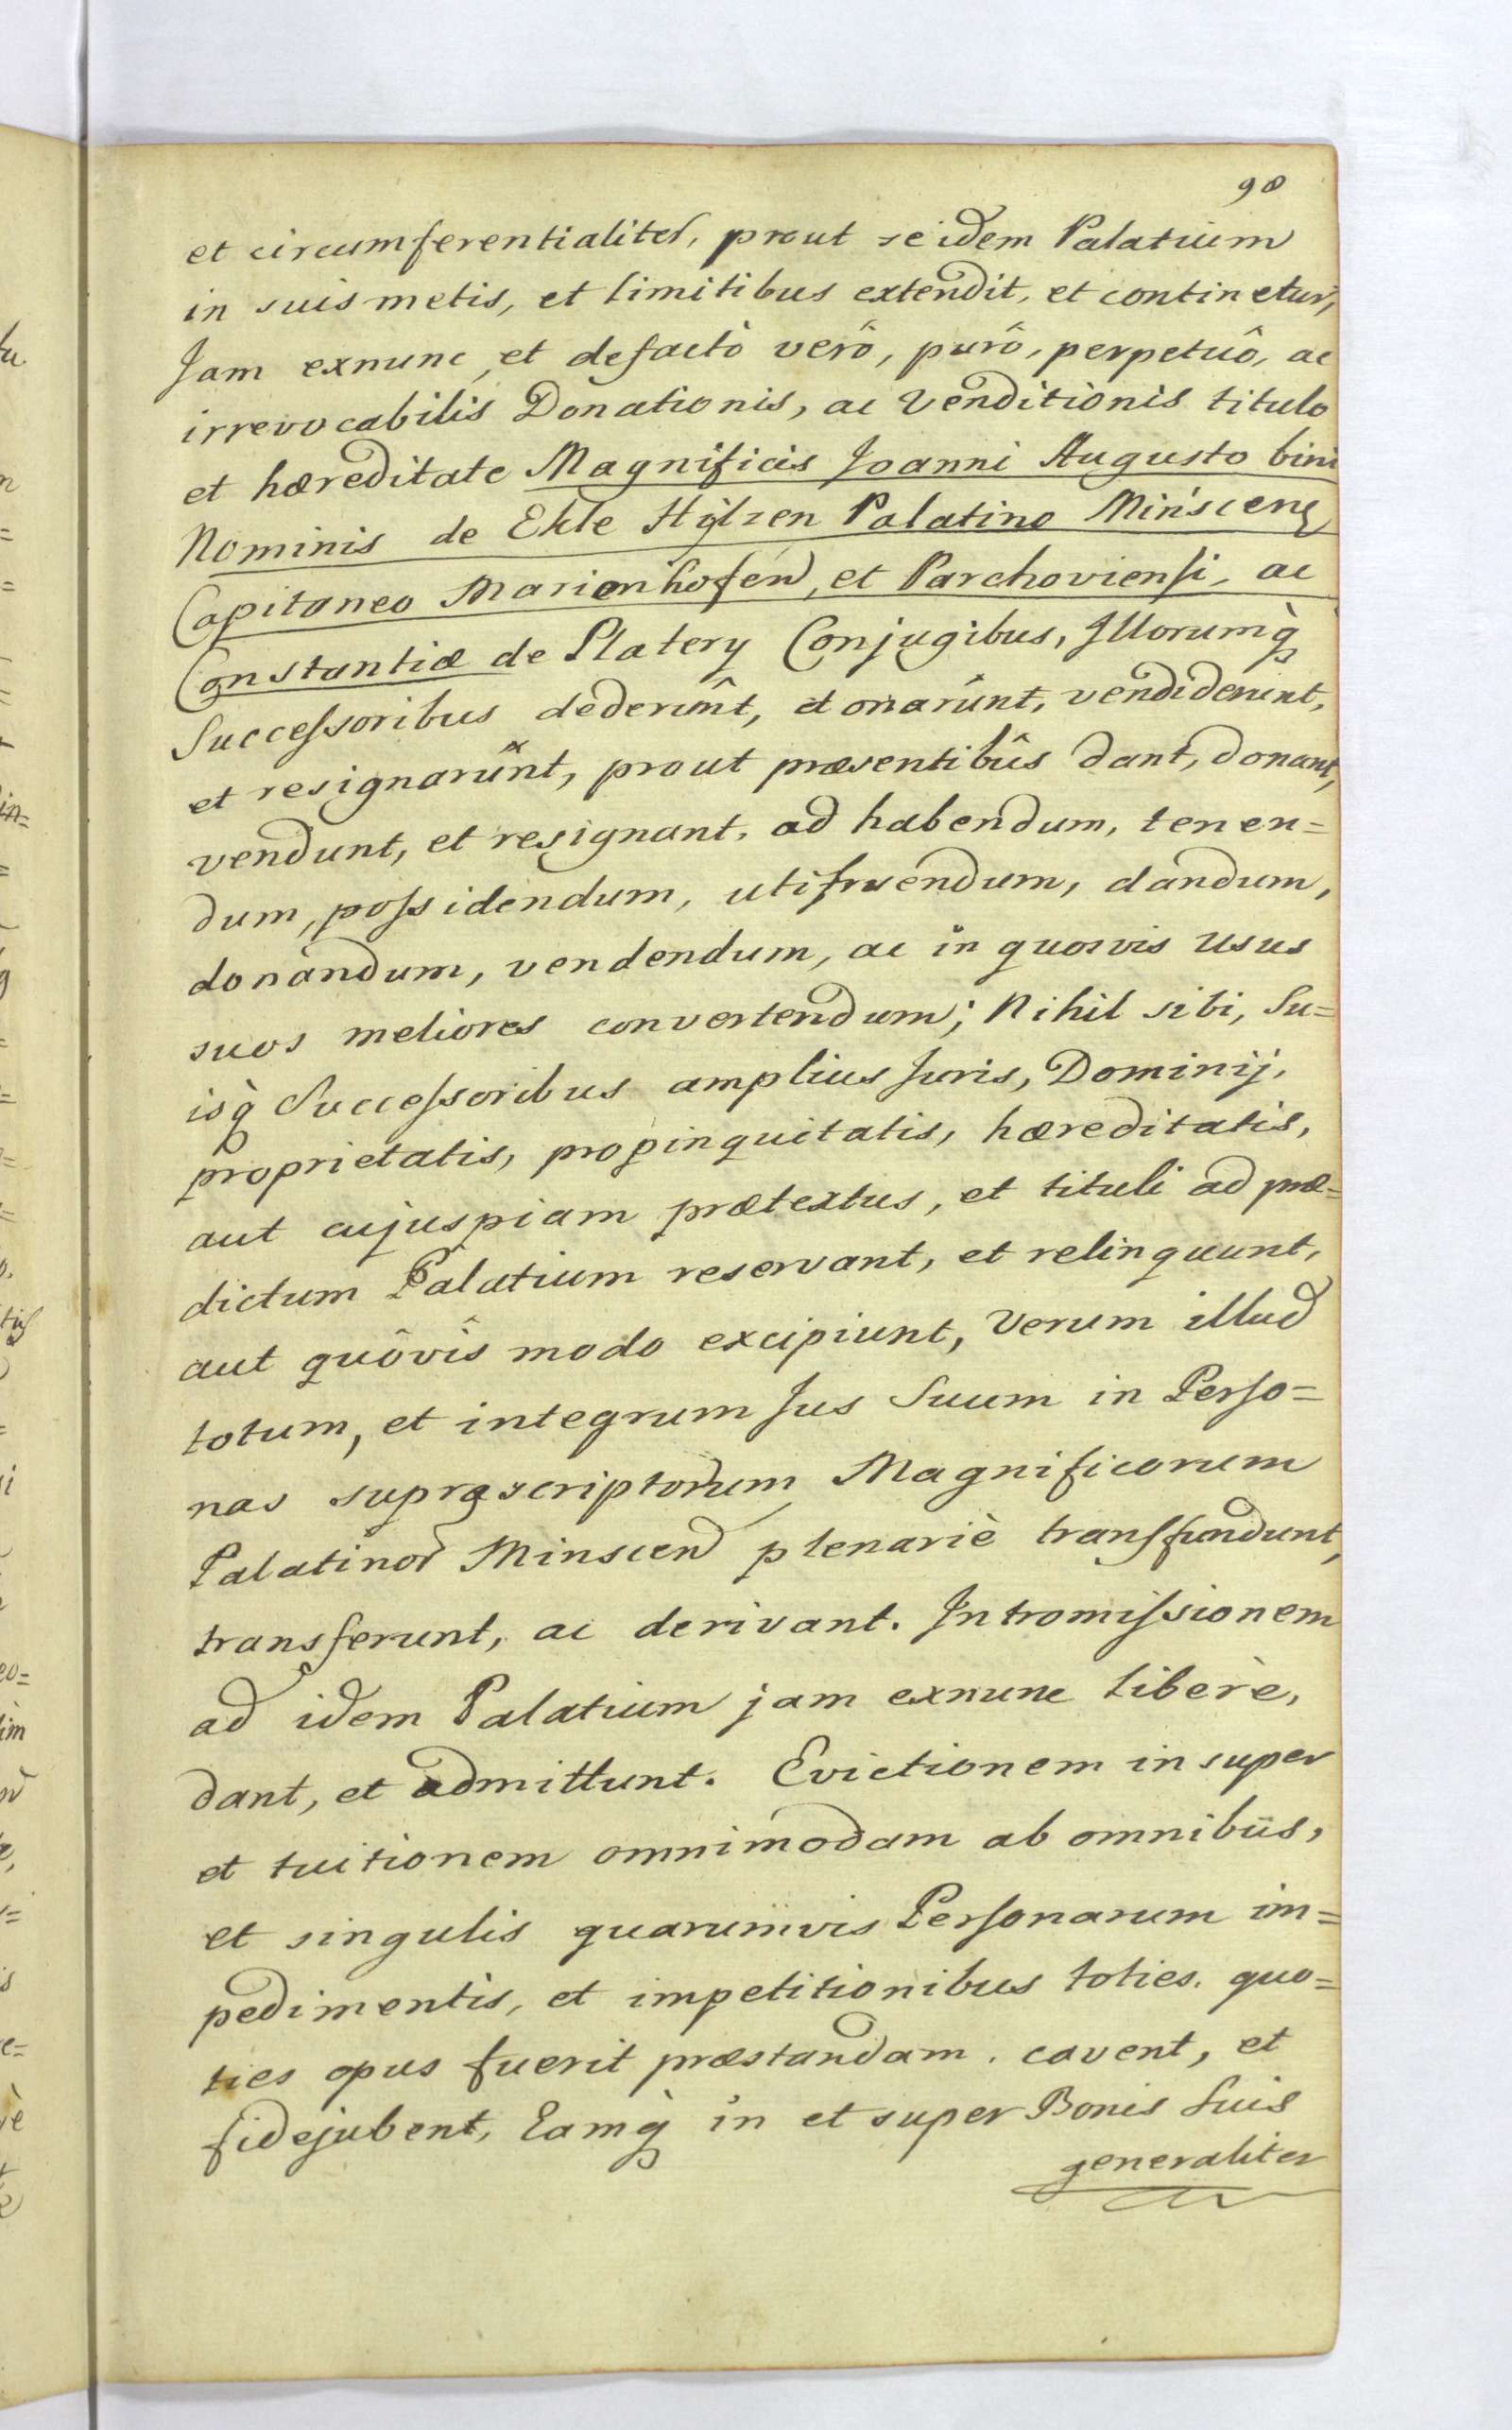 98
et circumferentialiter, prout se idem Palatium
in suis metis, et limitibus extendit, et continetur,
Jam exnunc, et defactò verô, purô, perpetuô, ac
irrevocabilis Donationis, ac Venditionis titulo
et hæreditate Magnificis Joanni Augusto bini
Nominis de Ekle Hÿlzen Palatino Minscen
Capitaneo Marienhofen, et Parchoviensi, ac
Constantiæ de Platery Conjugibus, Illorumq̀
Successoribus dederunt, donarunt, vendiderunt,
et resignarunt, prout præsentibûs dant, donant,
vendunt, et resignant, ad habendum, tenen=
dum, possidendum, utifruendum, dandum,
donandum, vendendum, ac in quosvis usus
suos meliores convertendum; Nihil sibi, Su=
isq̀ Successoribus amplius Juris, Dominij,
proprietatis, propinquitatis, hæreditatis,
aut cujuspiam prætextus, et tituli ad præ=
dictum Palatium reservant, et relinquunt,
aut quôvîs modo excipiunt, Verum illud
totum, et integrum Jus Suum in Perso=
nas supra scriptorum Magnificorum
Palatinor Minscen plenariè transfundunt,
transferunt, ac derivant. Intromissionem
ad idem Palatium jam exnunc liberè,
dant, et admittunt. Evictionem in super
et tuitionem omnimodam ab omnibus,
et singulis quarumvis Personarum im=
pedimentis, et impetitionibus toties. quo=
ties opus fuerit præstandam. cavent, et
fidejubent, Eamq̀ in et super Bonis Suis
generaliter